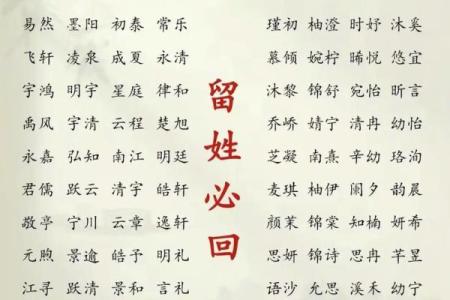 易然 墨阳 初泰 常乐
飞轩 凌泉 成夏 永清
宇鸿 明宇 星庭 律和
禹风 宇清 云程 楚旭
永嘉 弘知 南江 明廷
君儒 跃云 清宇 皓轩
敬亭 宁川 云章 逸轩
元煦 景逾 皓予 明礼
江寻 跃清 景和 言礼
留姓必回
瑾初 柚澄 时妤 沐奚
慕倾 婉柠 晞悦 悠宜
沐黎 锦舒 宛怡 昕言
乔峤 婧宁 清冉 幼怡
芝凝 南熹 辛幼 珞洵
麦琪 柚伊 阑夕 韵晨
颜茉 锦棠 知楠 妍希
思妍 锦诗 思冉 芊昱
语沙 允思 溪禾 幼宁